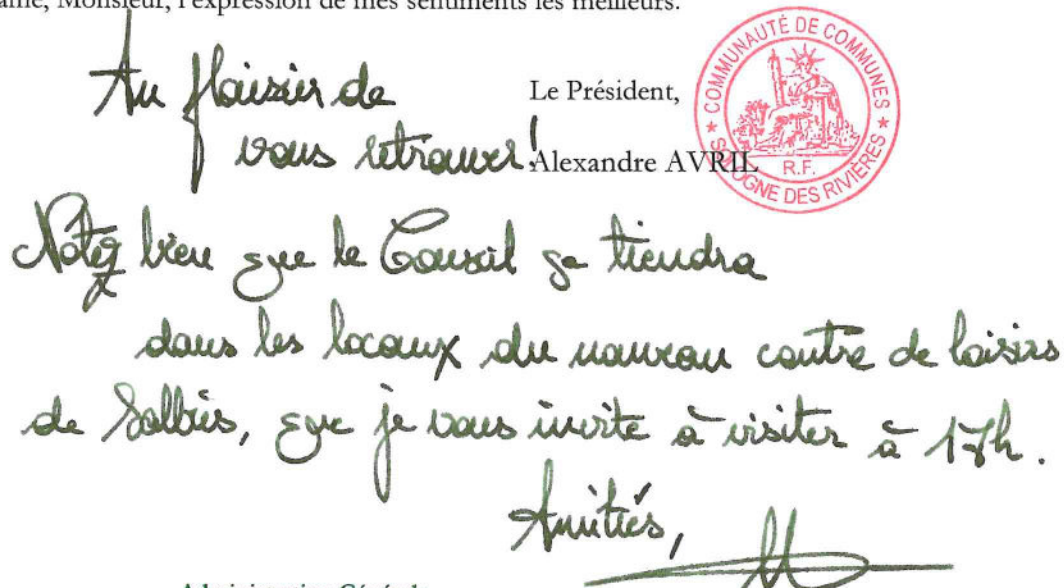 Madame, Monsieur, l'expression de mes sentiments les meilleurs.
Au plaisir de
vous retrouver !
Le Président,
Alexandre AVRIL
COMMUNAUTÉ DE COMMUNES
SOLOGNE DES RIVIÈRES
R.F.
Notez bien que le Conseil se tiendra
dans les locaux du nouveau centre de loisirs
de Salbris, que je vous invite à visiter à 17h.
Amitiés,